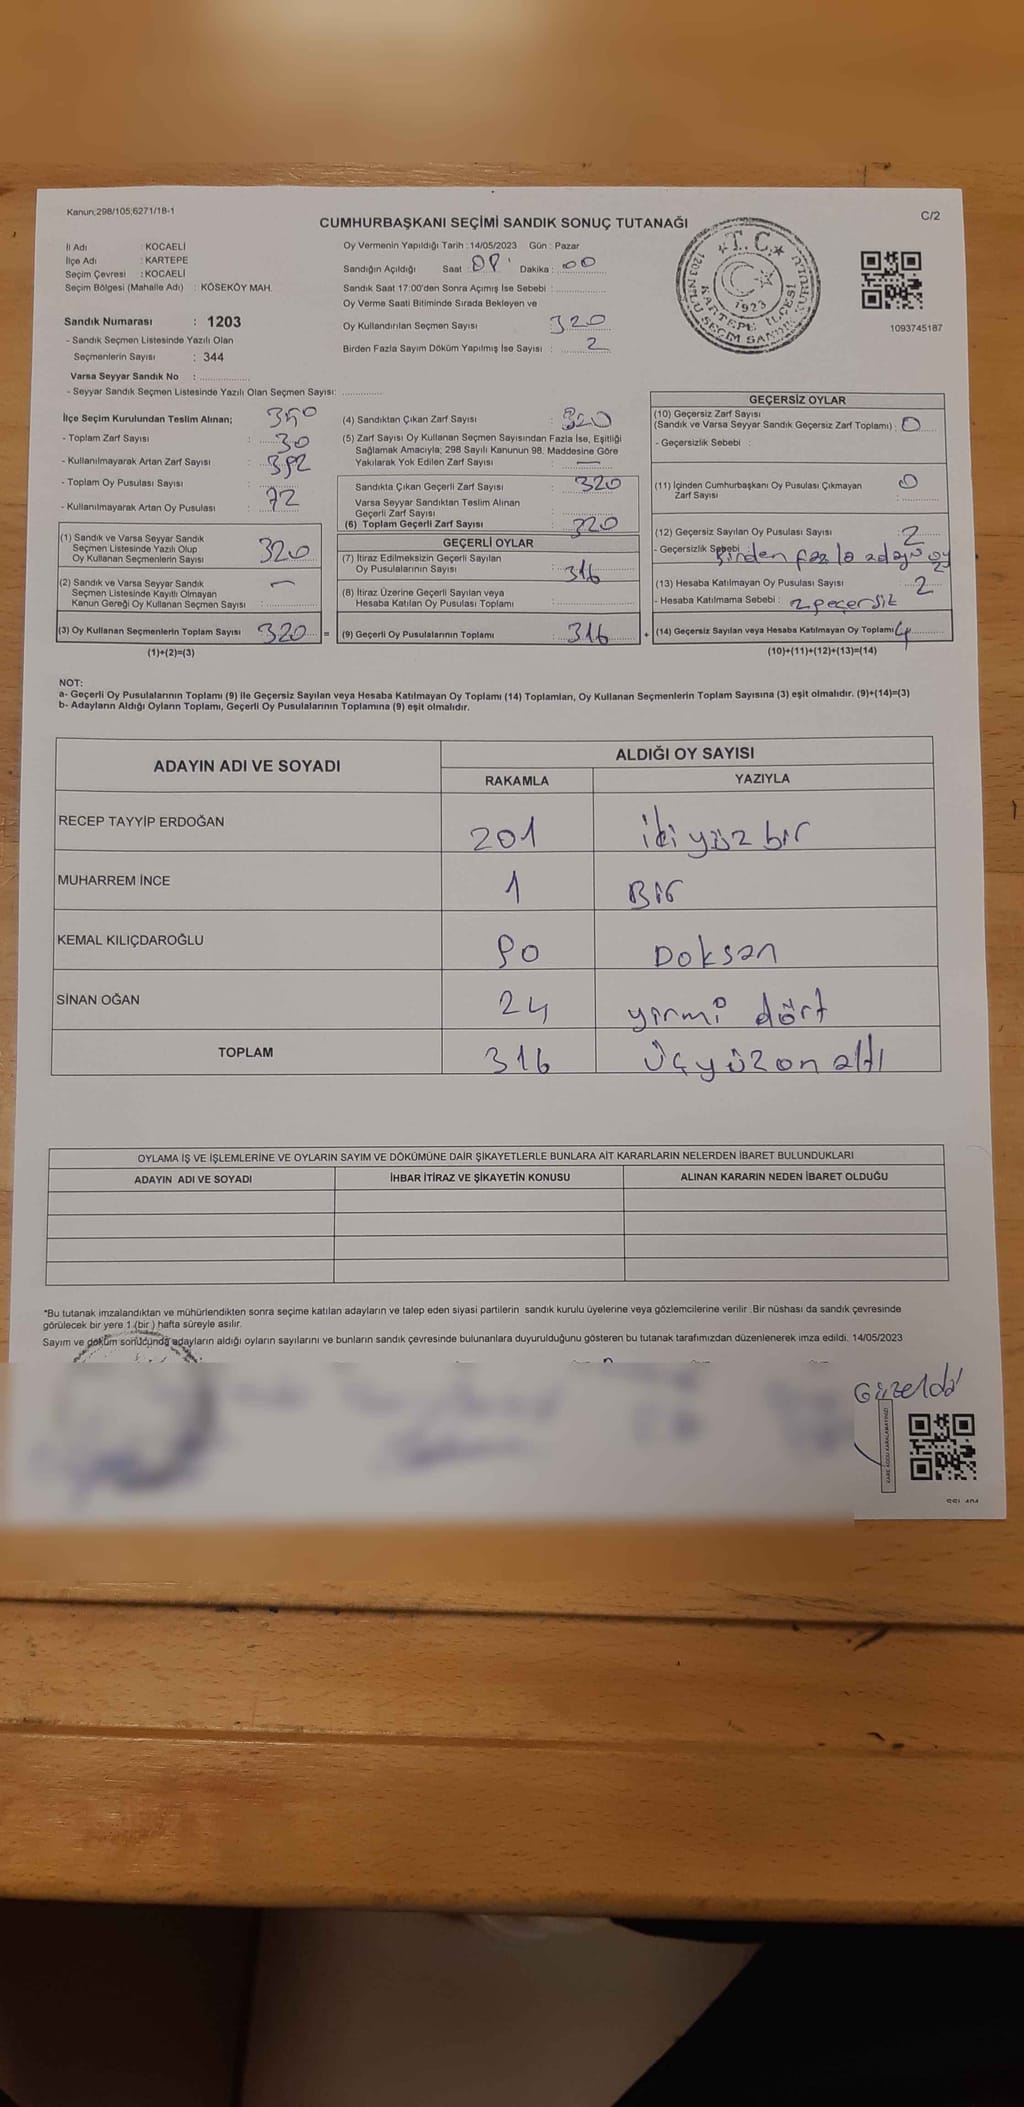 Kanun;298/105;6271/18-1
C/2
CUMHURBAŞKANI SEÇİMİ SANDIK SONUÇ TUTANAĞI
İl Adı : KOCAELİ
İlçe Adı : KARTEPE
Seçim Çevresi : KOCAELİ
Seçim Bölgesi (Mahalle Adı) : KÖSEKÖY MAH.
Sandık Numarası : 1203
- Sandık Seçmen Listesinde Yazılı Olan
Seçmenlerin Sayısı : 344
Varsa Seyyar Sandık No :
- Seyyar Sandık Seçmen Listesinde Yazılı Olan Seçmen Sayısı:
Oy Vermenin Yapıldığı Tarih : 14/05/2023 Gün : Pazar
Sandığın Açıldığı Saat : 08 Dakika : 00
Sandık Saat 17:00'den Sonra Açımış İse Sebebi :
Oy Verme Saati Bitiminde Sırada Bekleyen ve
Oy Kullandırılan Seçmen Sayısı 320
Birden Fazla Sayım Döküm Yapılmış İse Sayısı : 2
T.C.
1203 NOLU SEÇİM SANDIK KURULU
KARTEPE İLÇESİ
1923
1093745187
İlçe Seçim Kurulundan Teslim Alınan;
- Toplam Zarf Sayısı : 350
- Kullanılmayarak Artan Zarf Sayısı : 30
- Toplam Oy Pusulası Sayısı : 392
- Kullanılmayarak Artan Oy Pusulası : 72
(1) Sandık ve Varsa Seyyar Sandık
Seçmen Listesinde Yazılı Olup
Oy Kullanan Seçmenlerin Sayısı 320
(2) Sandık ve Varsa Seyyar Sandık
Seçmen Listesinde Kayıtlı Olmayan
Kanun Gereği Oy Kullanan Seçmen Sayısı : —
(3) Oy Kullanan Seçmenlerin Toplam Sayısı 320 =
(1)+(2)=(3)
(4) Sandıktan Çıkan Zarf Sayısı : 320
(5) Zarf Sayısı Oy Kullanan Seçmen Sayısından Fazla İse, Eşitliği
Sağlamak Amacıyla; 298 Sayılı Kanunun 98. Maddesine Göre
Yakılarak Yok Edilen Zarf Sayısı : —
Sandıkta Çıkan Geçerli Zarf Sayısı : 320
Varsa Seyyar Sandıktan Teslim Alınan
Geçerli Zarf Sayısı
(6) Toplam Geçerli Zarf Sayısı : 320
GEÇERLİ OYLAR
(7) İtiraz Edilmeksizin Geçerli Sayılan
Oy Pusulalarının Sayısı : 316
(8) İtiraz Üzerine Geçerli Sayılan veya
Hesaba Katılan Oy Pusulası Toplamı :
(9) Geçerli Oy Pusulalarının Toplamı : 316 +
GEÇERSİZ OYLAR
(10) Geçersiz Zarf Sayısı
(Sandık ve Varsa Seyyar Sandık Geçersiz Zarf Toplamı) : 0
- Geçersizlik Sebebi :
(11) İçinden Cumhurbaşkanı Oy Pusulası Çıkmayan
Zarf Sayısı : 0
(12) Geçersiz Sayılan Oy Pusulası Sayısı : 2
- Geçersizlik Sebebi birinden fazla adaya oy
(13) Hesaba Katılmayan Oy Pusulası Sayısı : 2
- Hesaba Katılmama Sebebi : 2 geçersiz
(14) Geçersiz Sayılan veya Hesaba Katılmayan Oy Toplamı 4
(10)+(11)+(12)+(13)=(14)
NOT:
a- Geçerli Oy Pusulalarının Toplamı (9) ile Geçersiz Sayılan veya Hesaba Katılmayan Oy Toplamı (14) Toplamları, Oy Kullanan Seçmenlerin Toplam Sayısına (3) eşit olmalıdır. (9)+(14)=(3)
b- Adayların Aldığı Oyların Toplamı, Geçerli Oy Pusulalarının Toplamına (9) eşit olmalıdır.
ADAYIN ADI VE SOYADI
ALDIĞI OY SAYISI
RAKAMLA YAZIYLA
RECEP TAYYİP ERDOĞAN 201 iki yüz bir
MUHARREM İNCE 1 Bir
KEMAL KILIÇDAROĞLU 90 Doksan
SİNAN OĞAN 24 yirmi dört
TOPLAM 316 üçyüzon altı
OYLAMA İŞ VE İŞLEMLERİNE VE OYLARIN SAYIM VE DÖKÜMÜNE DAİR ŞİKAYETLERLE BUNLARA AİT KARARLARIN NELERDEN İBARET BULUNDUKLARI
ADAYIN ADI VE SOYADI İHBAR İTİRAZ VE ŞİKAYETİN KONUSU ALINAN KARARIN NEDEN İBARET OLDUĞU
*Bu tutanak imzalandıktan ve mühürlendikten sonra seçime katılan adayların ve talep eden siyasi partilerin sandık kurulu üyelerine veya gözlemcilerine verilir .Bir nüshası da sandık çevresinde
görülecek bir yere 1 (bir ) hafta süreyle asılır.
Sayım ve döküm sonucunda adayların aldığı oyların sayılarını ve bunların sandık çevresinde bulunanlara duyurulduğunu gösteren bu tutanak tarafımızdan düzenlenerek imza edildi. 14/05/2023
KARE KODU KARALAMAYINIZ!